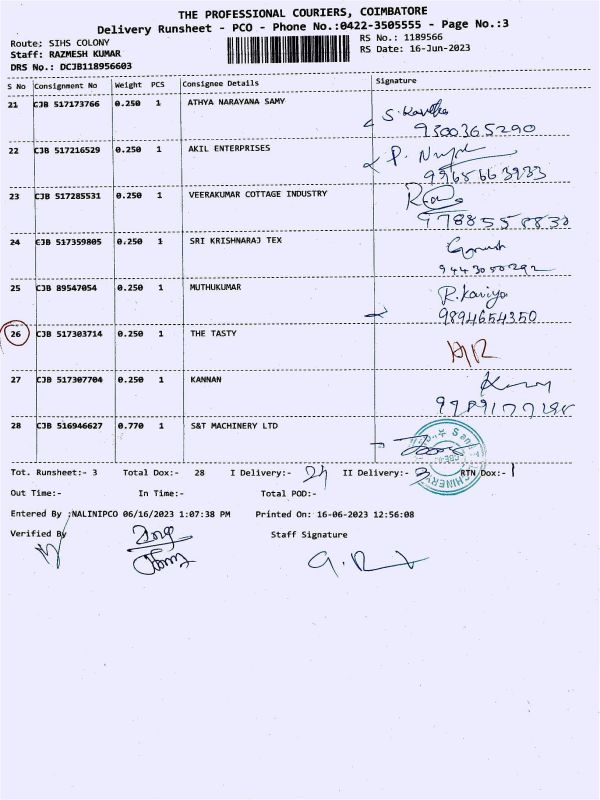 THE PROFESSIONAL COURIERS, COIMBATORE
Delivery Runsheet - PCO - Phone No.:0422-3505555 - Page No.:3
Route: SIHS COLONY
RS No.: 1189566
Staff: RAZMESH KUMAR
RS Date: 16-Jun-2023
DRS No.: DCJB118956603
S No Consignment No Weight PCS Consignee Details Signature
21 CJB 517173766 0.250 1 ATHYA NARAYANA SAMY
9300365290
22 CJB 517216529 0.250 1 AKIL ENTERPRISES
23 CJB 517285531 0.250 1 VEERAKUMAR COTTAGE INDUSTRY
24 CJB 517359805 0.250 1 SRI KRISHNARAJ TEX
25 CJB 89547054 0.250 1 MUTHUKUMAR R. Kaviya
9894654350
26 CJB 517303714 0.250 1 THE TASTY
27 CJB 517307704 0.250 1 KANNAN
28 CJB 516946627 0.770 1 S&T MACHINERY LTD
Tot. Runsheet:- 3 Total Dox:- 28 I Delivery:- II Delivery:- 3 RTN Dox:- 1
Out Time:- In Time:- Total POD:-
Entered By :NALINIPCO 06/16/2023 1:07:38 PM Printed On: 16-06-2023 12:56:08
Verified By Staff Signature